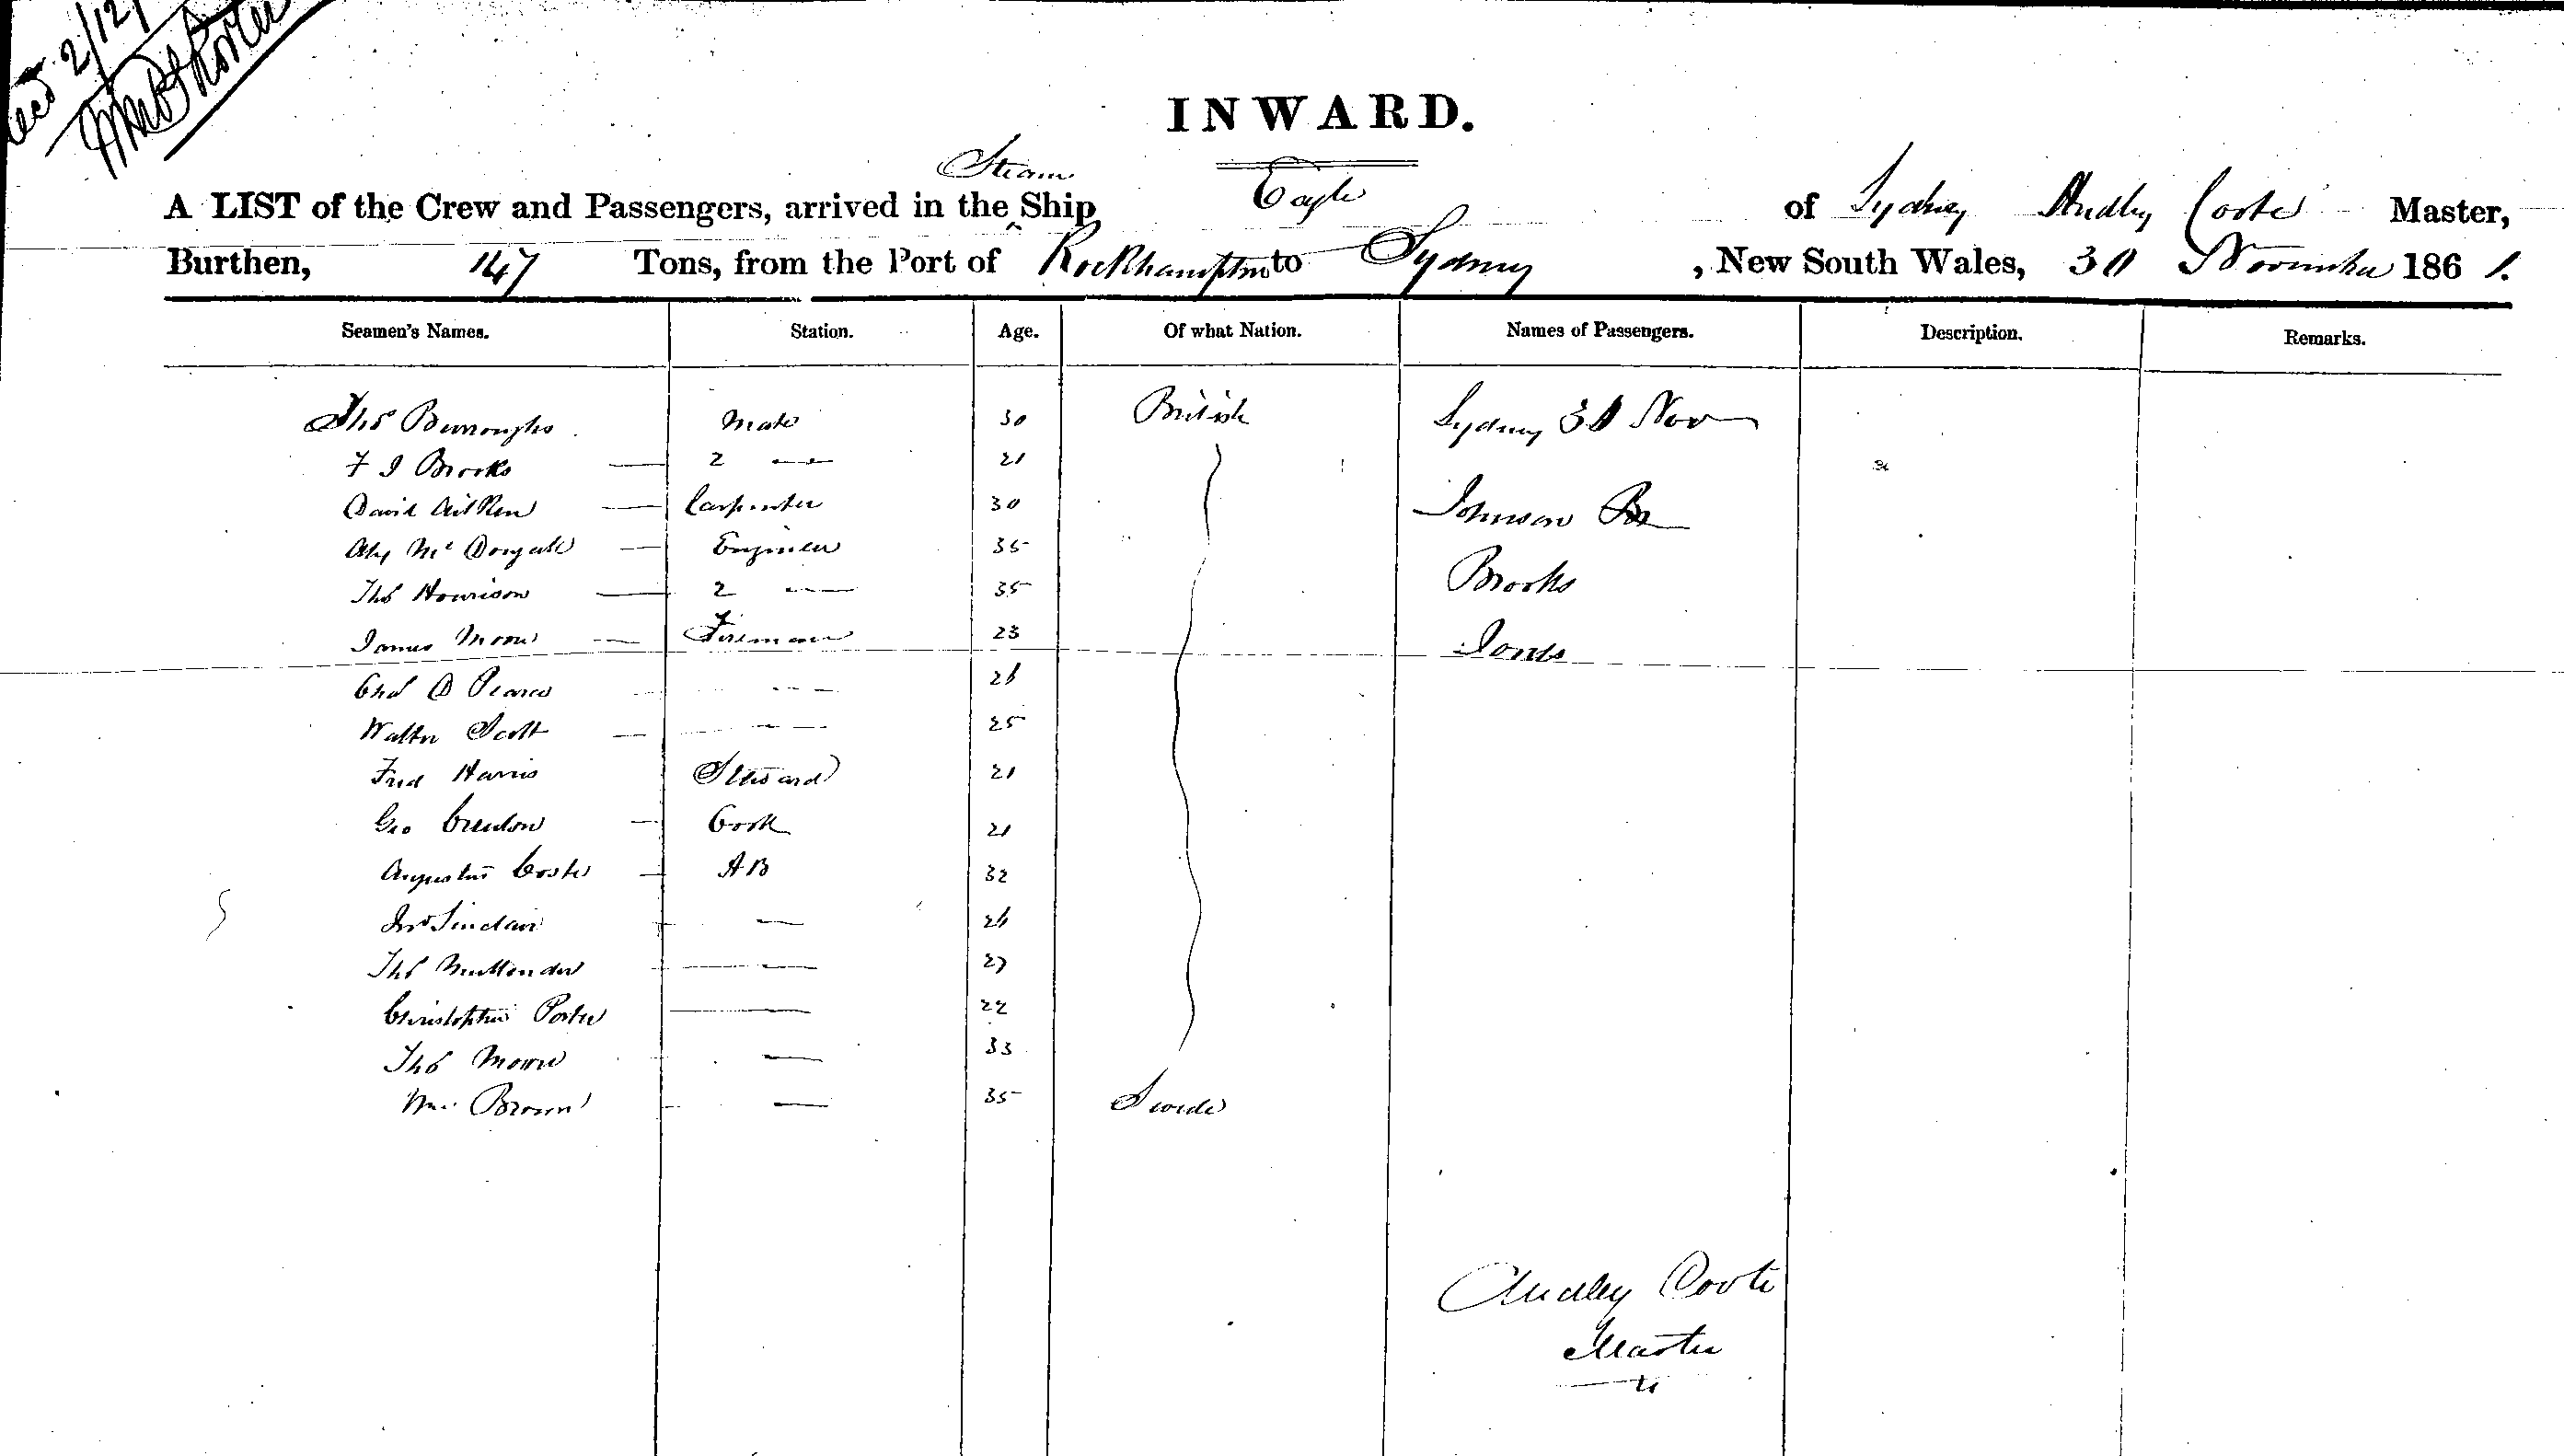 Recd 2/12/
INWARD.
Steam
A LIST of the Crew and Passengers, arrived in the Ship Eagle of Sydney Audley Coote Master,
Burthen, 147 Tons, from the Port of Rockhampton to Sydney, New South Wales, 30 November 1861.
Seamen's Names. Station. Age. Of what Nation. Names of Passengers. Description. Remarks.
Thos Burroughs Mate 30 British Sydney 30 Nov
F J Brooks 2 — 21
David Aitken Carpenter 30 Johnson
Alex McDougall Engineer 35
Thos Hourison 2 — 35 Brooks
James Moore Fireman 23 Jones
Chas D Pearce — 26
Walter Scott — 25
Fred Harris Steward 21
Geo Cook 21
Augustus Coster AB 32
Jno Sinclair — 26
Thos — 27
Christopher Porter — 22
Thos Moore — 33
Wm Brown — 35 Swede
Audley Coote
Master